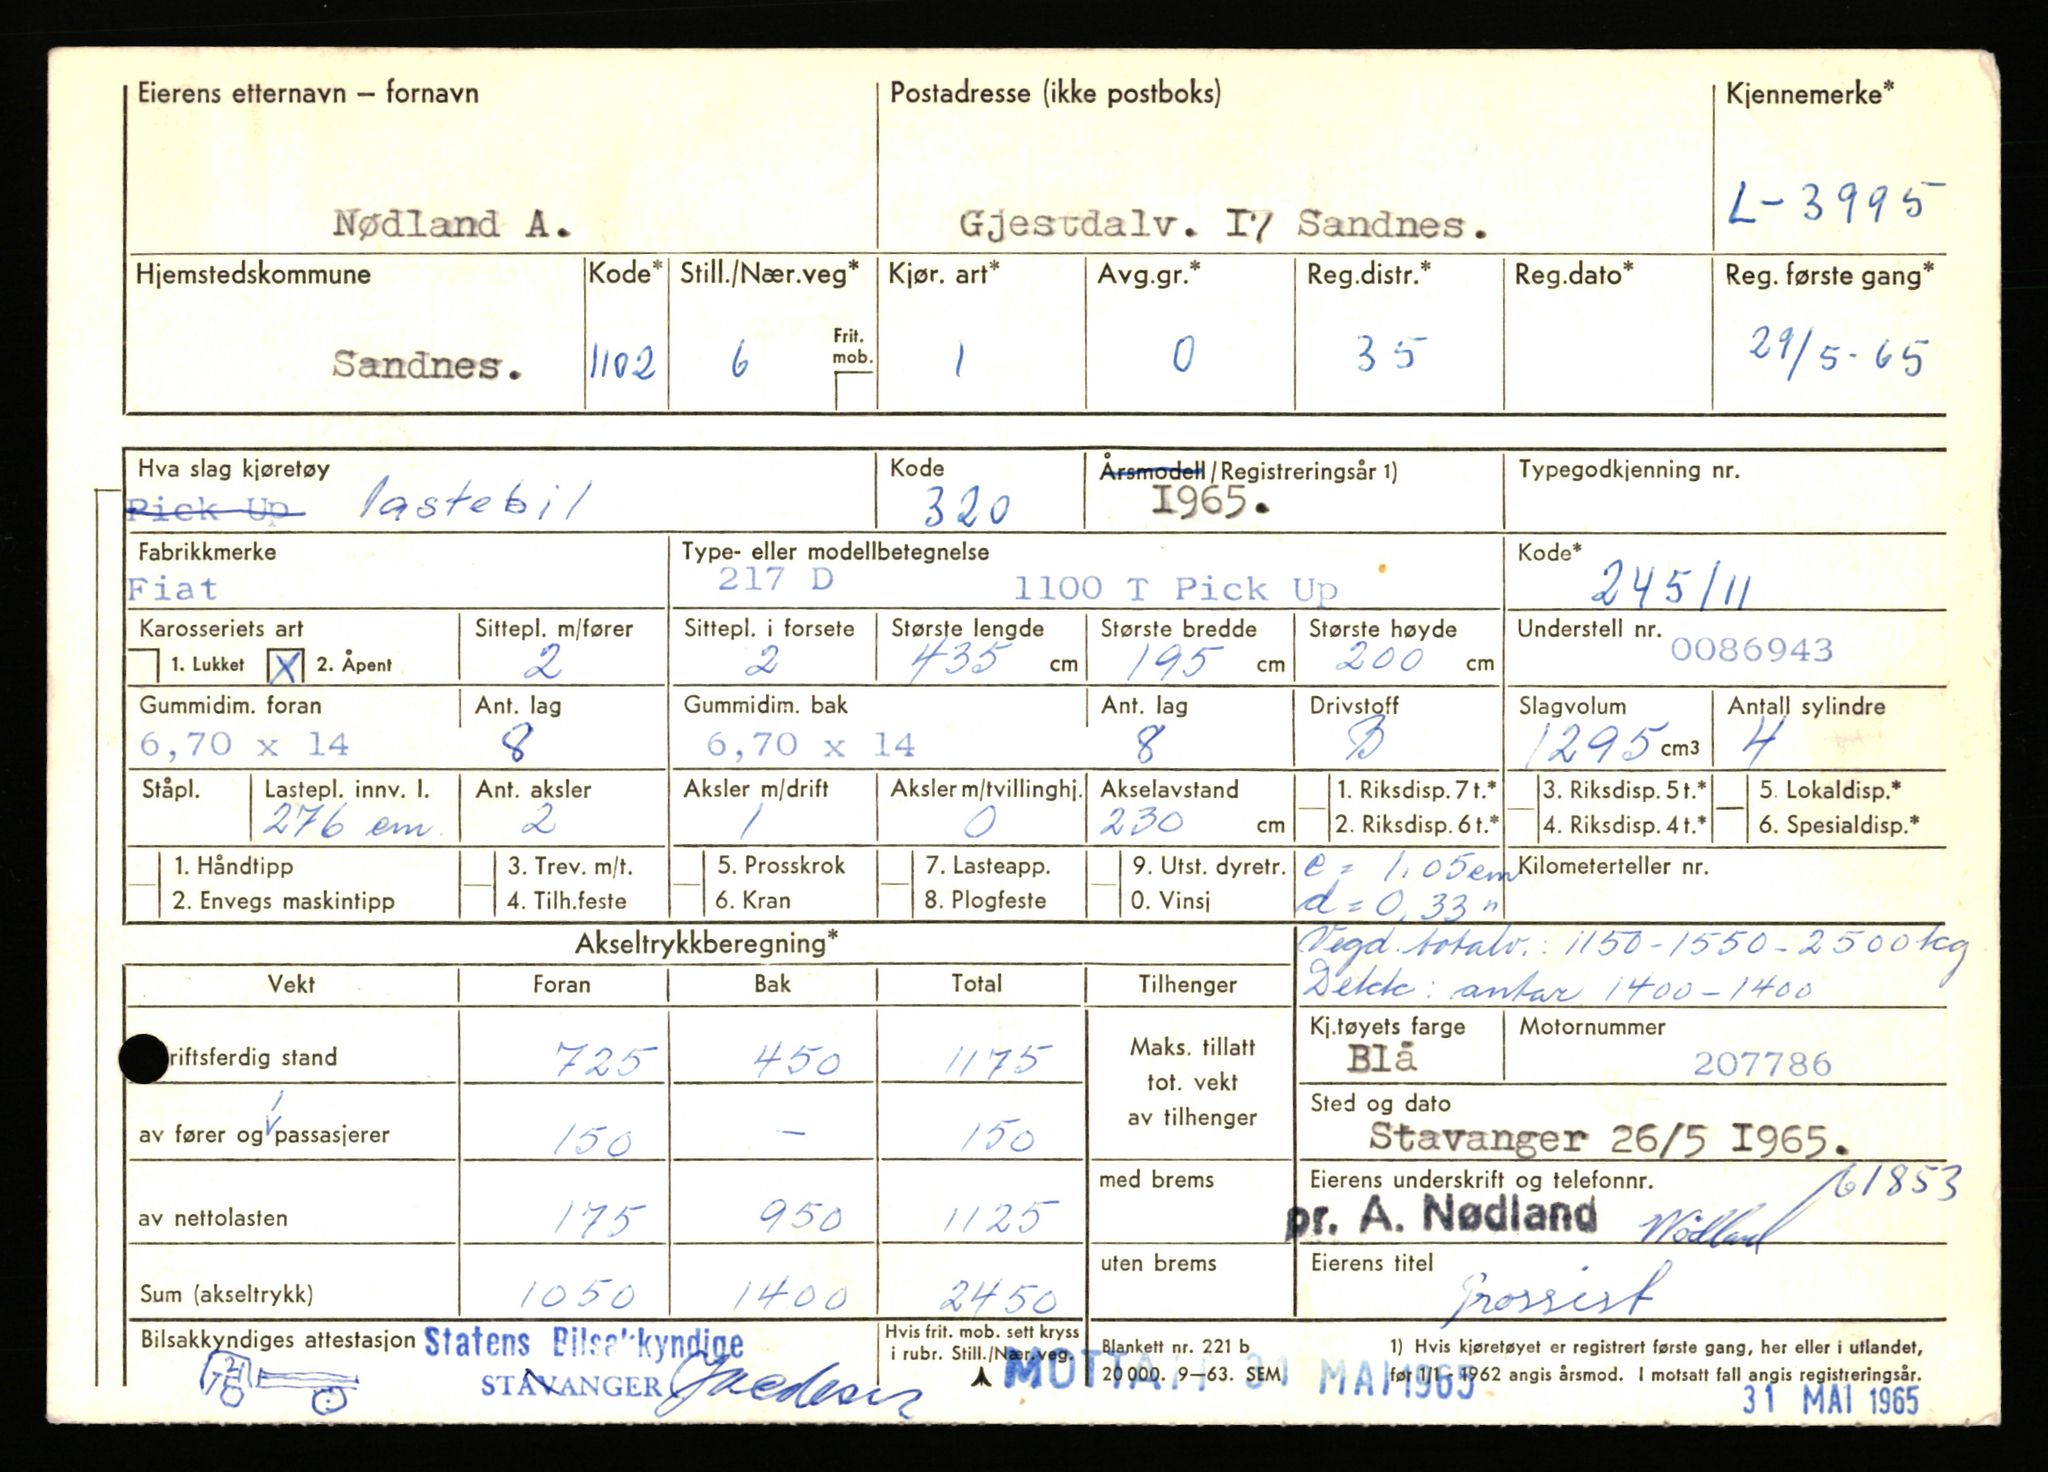 Eierens etternavn – fornavn Postadresse (ikke postboks) Kjennemerke*
Nødland A. Gjestdalv. I7 Sandnes. L-3995
Hjemstedskommune Kode* Still./Nær.veg* Kjør. art* Avg.gr.* Reg.distr.* Reg.dato* Reg. første gang*
Sandnes. 1102 6 Frit. mob. 1 0 35 29/5-65
Hva slag kjøretøy Kode Årsmodell/Registreringsår 1) Typegodkjenning nr.
Pick Up lastebil 320 I965.
Fabrikkmerke Type- eller modellbetegnelse Kode*
Fiat 217 D 1100 T Pick Up 245/11
Karosseriets art Sittepl. m/fører Sittepl. i forsete Største lengde Største bredde Største høyde Understell nr.
1. Lukket X 2. Åpent 2 2 435 cm 195 cm 200 cm 0086943
Gummidim. foran Ant. lag Gummidim. bak Ant. lag Drivstoff Slagvolum Antall sylindre
6,70 x 14 8 6,70 x 14 8 B 1295 cm3 4
Ståpl. Lastepl. innv. l. Ant. aksler Aksler m/drift Aksler m/tvillinghj. Akselavstand 1. Riksdisp. 7 t.* 3. Riksdisp. 5 t.* 5. Lokaldisp.*
276 cm 2 1 0 230 cm 2. Riksdisp. 6 t.* 4. Riksdisp. 4 t.* 6. Spesialdisp.*
1. Håndtipp 3. Trev. m/t. 5. Prosskrok 7. Lasteapp. 9. Utst. dyretr. c = 1.05 cm Kilometerteller nr.
2. Envegs maskintipp 4. Tilh.feste 6. Kran 8. Plogfeste 0. Vinsj d = 0,33 "
Akseltrykkberegning* Vegd. totalv.: 1150-1550-2500 kg
Vekt Foran Bak Total Tilhenger Dekk: antar 1400-1400
riftsferdig stand 725 450 1175 Maks. tillatt tot. vekt av tilhenger Kj.tøyets farge Motornummer
Blå 207786
av fører og 1 passasjerer 150 – 150 Sted og dato
Stavanger 26/5 I965.
av nettolasten 175 950 1125 med brems Eierens underskrift og telefonnr. 61853
pr. A. Nødland Nødland
Sum (akseltrykk) 1050 1400 2450 uten brems Eierens titel
Grossist
Bilsakkyndiges attestasjon Statens Bilsakkyndige Hvis frit. mob. sett kryss i rubr. Still./Nær.veg. Blankett nr. 221 b 1) Hvis kjøretøyet er registrert første gang, her eller i utlandet,
STAVANGER MOTTATT 31 MAI 1965 20 000. 9–63. SEM før 1/1 - 1962 angis årsmod. I motsatt fall angis registreringsår.
31 MAI 1965